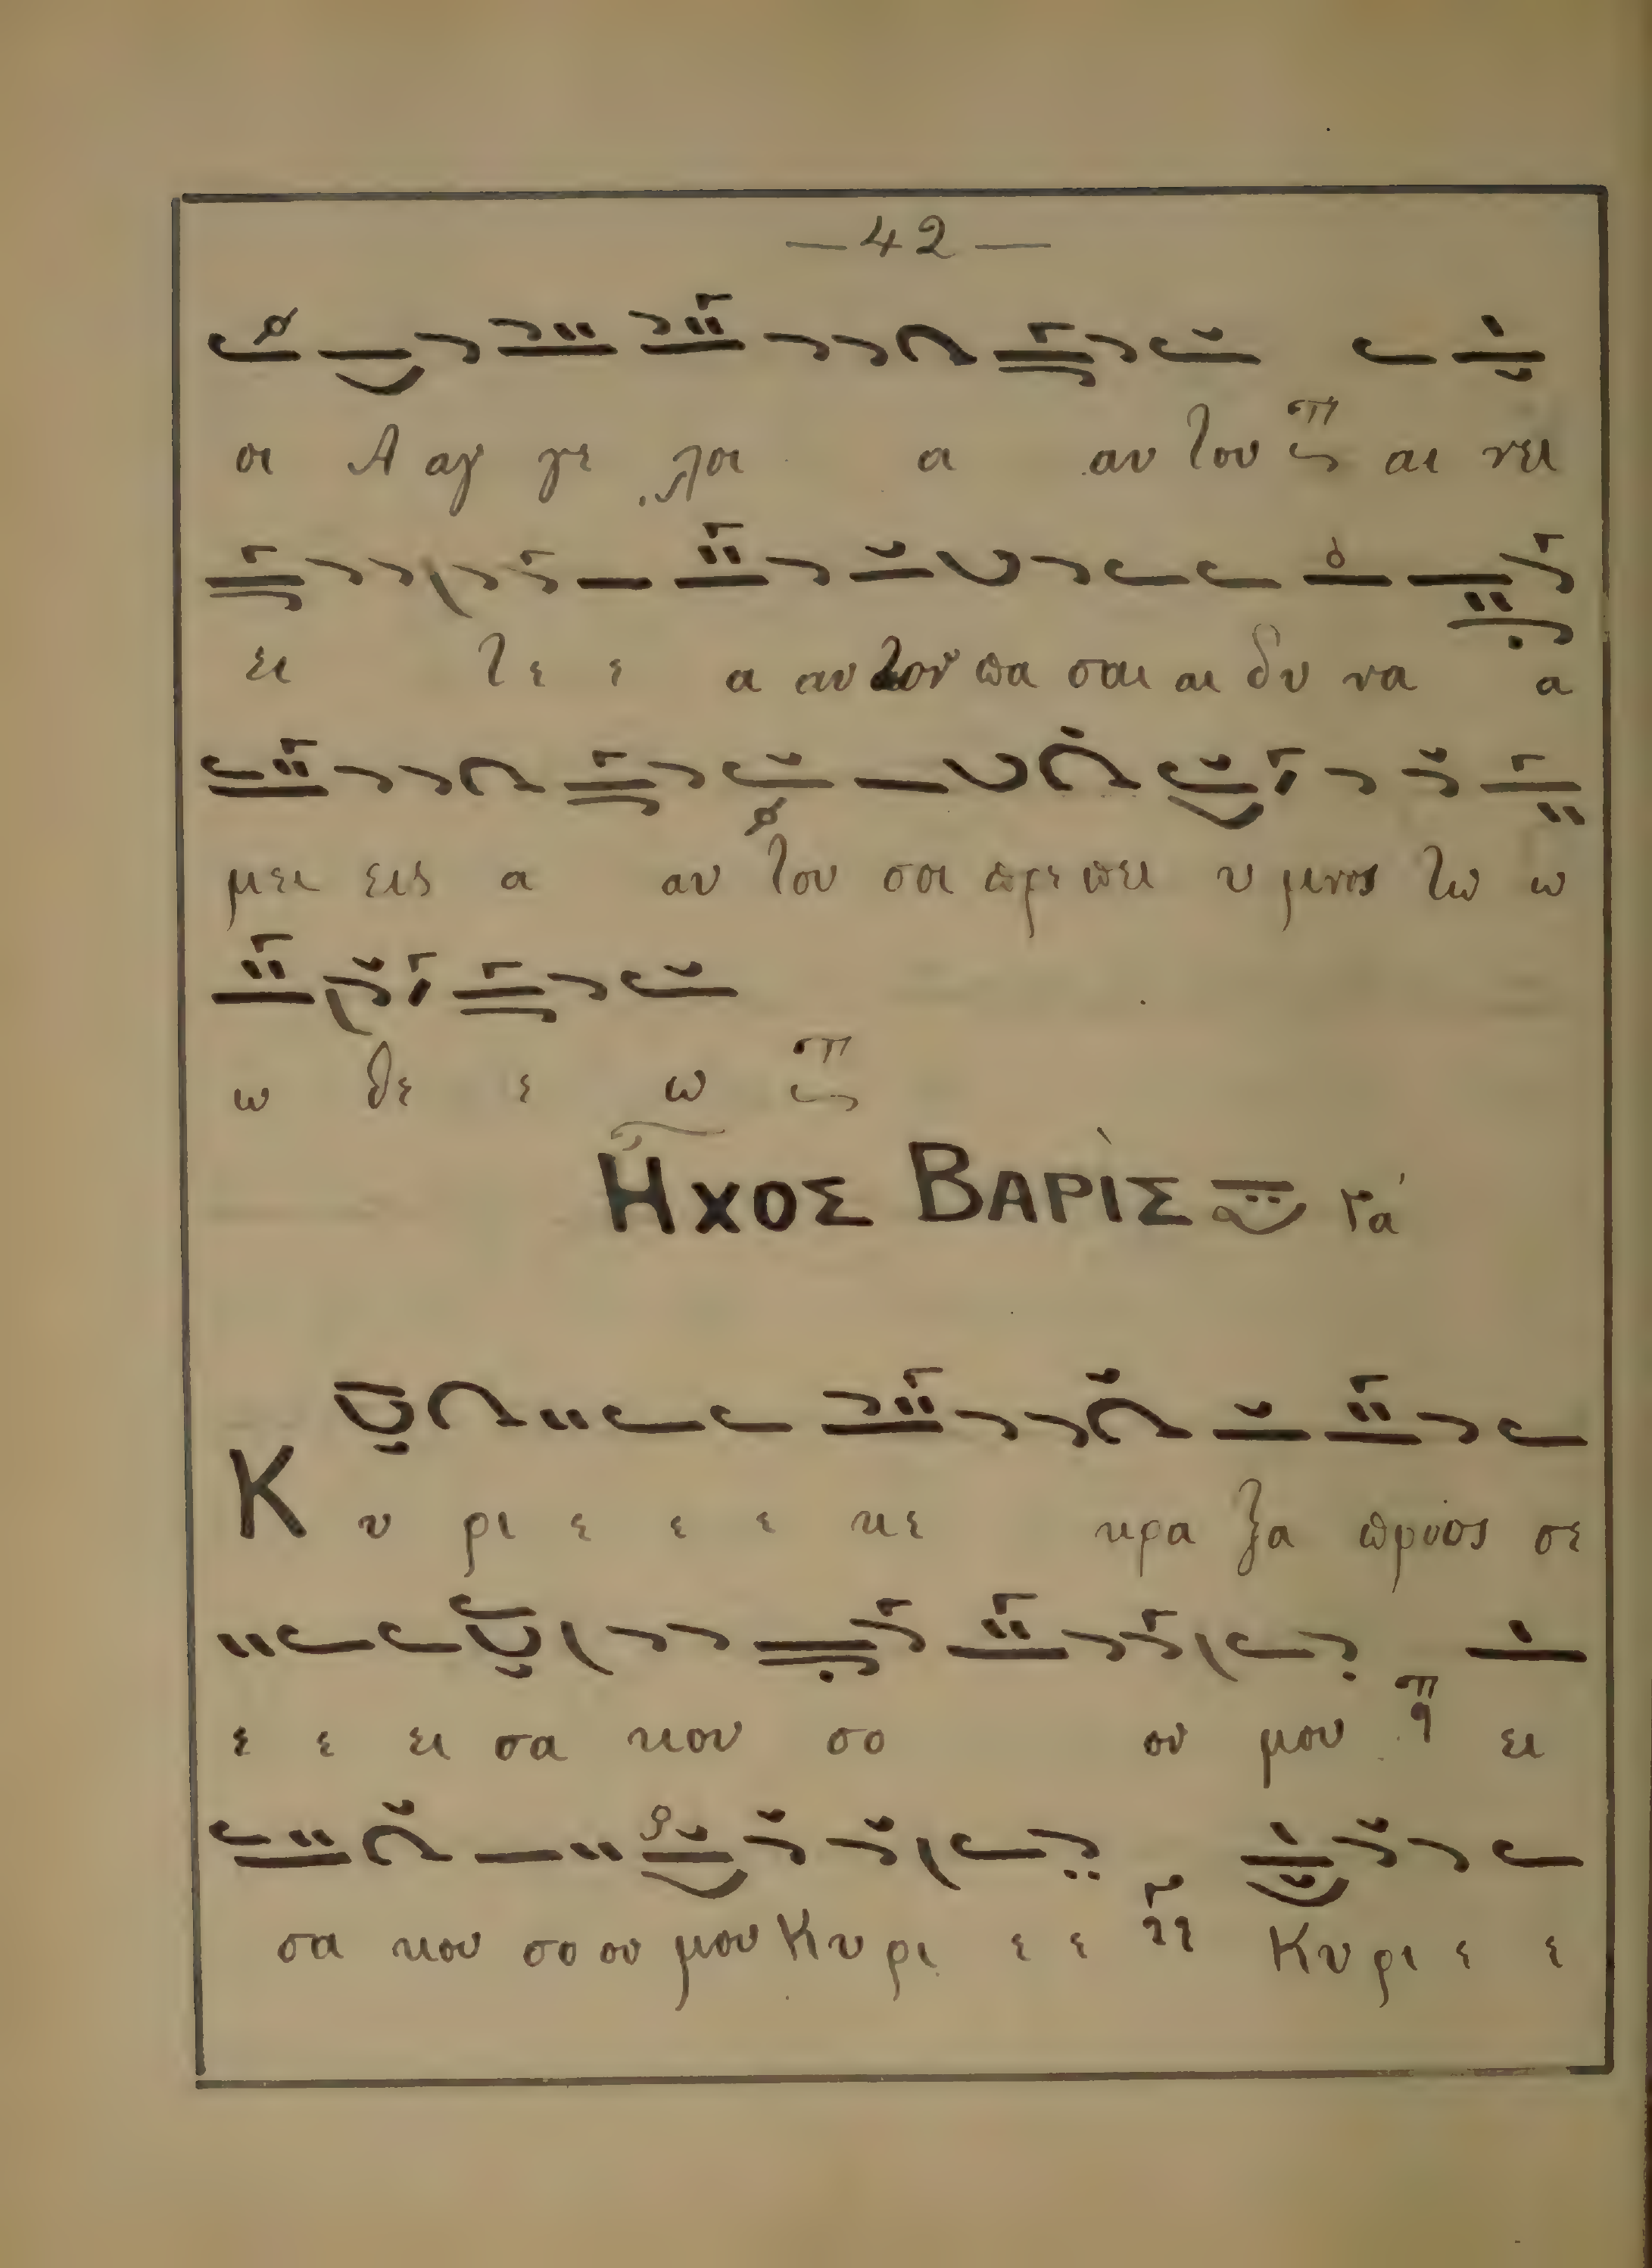 — 42 —
οι Α αγ γε λοι α αυ του αι νει
ει τε ε α αυ τον πα σαι αι δυ να α
μει εις α αυ του σοι πρε πει υ μνος τω ω
ω θε ε ω
ΗΧΟΣ ΒΑΡῚΣ Γα
Κ υ ρι ε ε ε κε κρα ξα προος σε
ε ε ει σα κου σο ου μου ει
σα κου σο ου μου Κυ ρι ε ε Κυ ρι ε ε